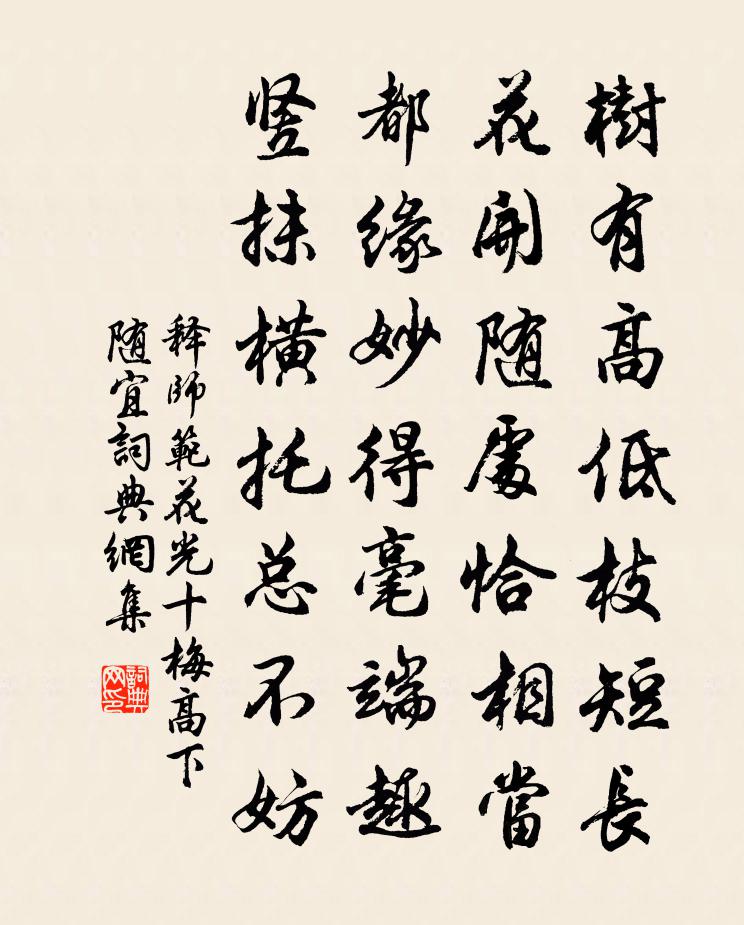 樹有高低枝短長
花開随處恰相當
都緣妙得毫端趣
竖抹橫托总不妨
释師範花光十梅高下
随宜詞典網集
詞典网印